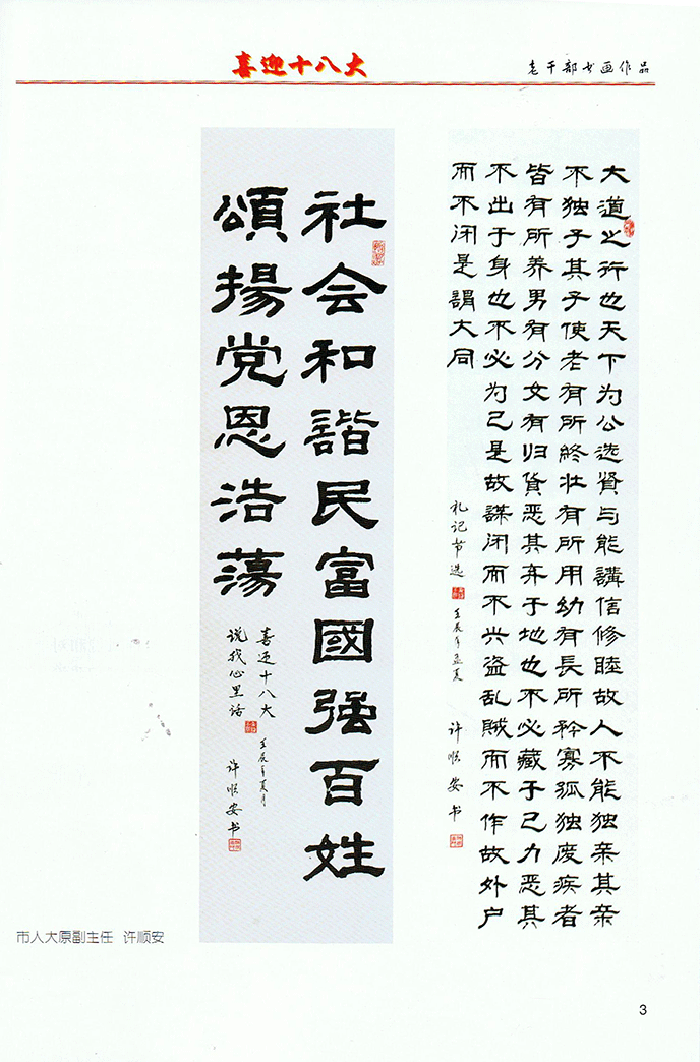 喜迎十八大
老干部书画作品
大道之行也天下为公选贤与能講信修睦故人不能独亲其亲
不独子其子使老有所終壮有所用幼有長所矜寡孤独废疾者
皆有所养男有分女有归貨恶其弃于地也不必藏于己力恶其
不出于身也不必为己是故謀闭而不兴盗乱贼而不作故外户
而不闭是謂大同
礼记节选
壬辰年孟夏
许顺安书
社会和諧民富國强百姓
頌揚党恩浩蕩
喜迎十八大
说我心里话
壬辰年夏月
许顺安书
市人大原副主任 许顺安
3